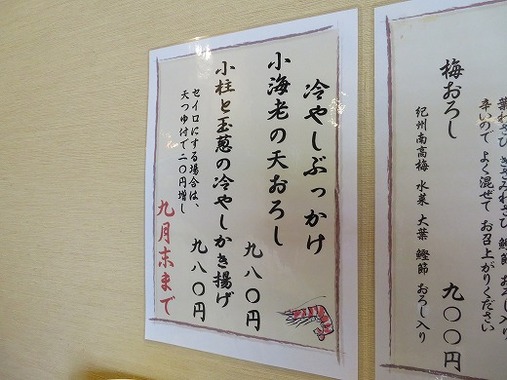 冷やしぶっかけ
小海老の天おろし
九八〇円
小柱と玉葱の冷やしかき揚げ
九八〇円
セイロにする場合は、
天つゆ付で二〇円増し
九月末まで
辛いので よく混ぜて お召上がりください
梅おろし
九〇〇円
紀州南高梅 水菜 大葉 鰹節 おろし入り